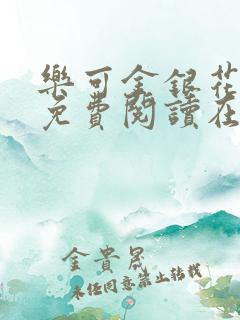 樂可金銀花
免費閱讀在
金貴晟
未經同意禁止轉載